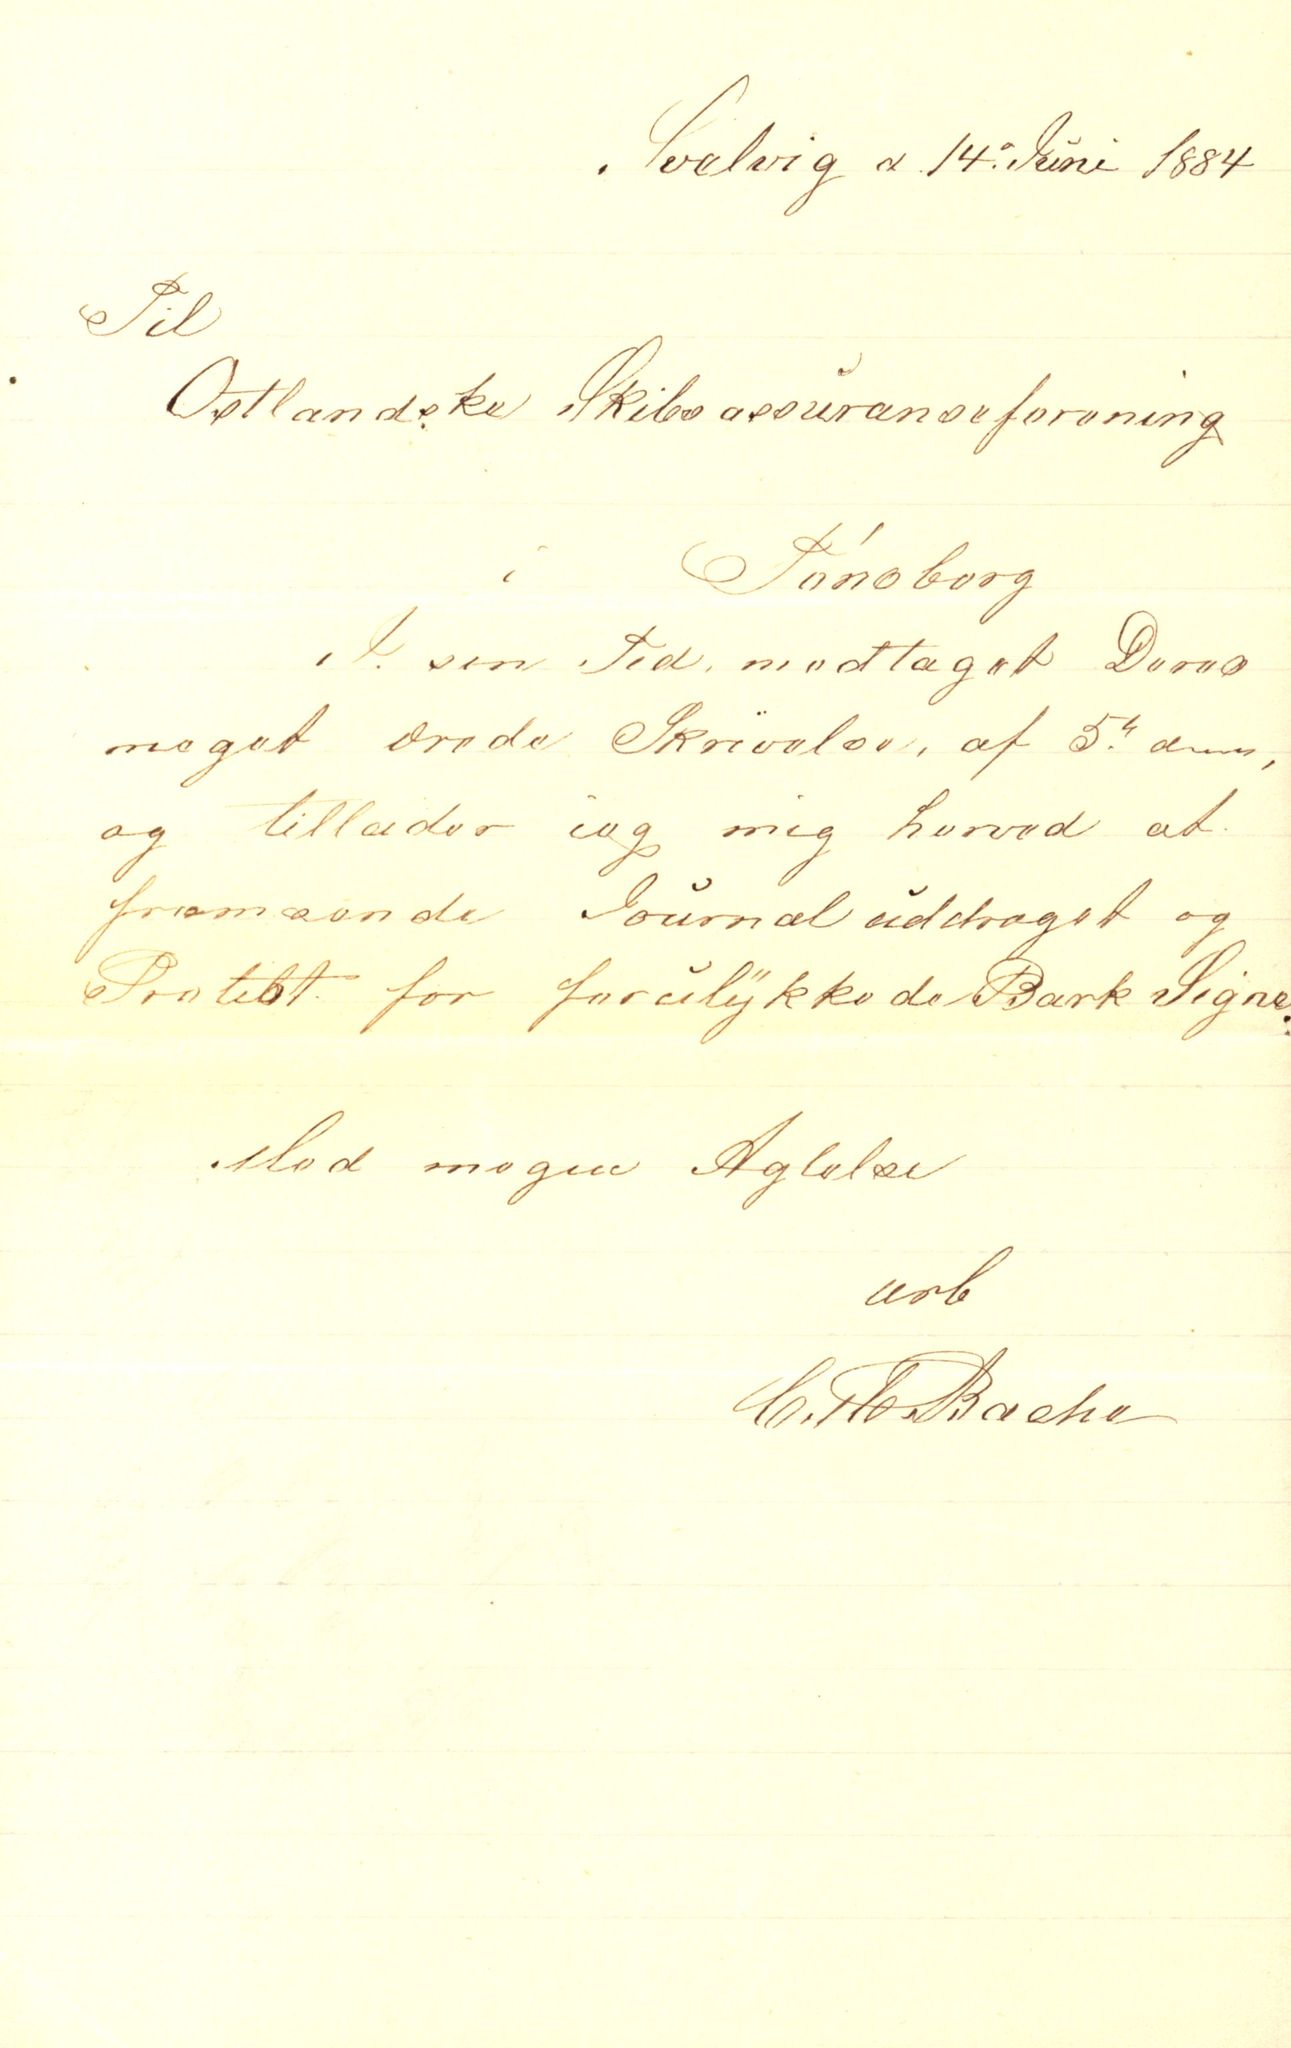 Svelvig d 14de Juni 1884
Til
Østlandske Skibsassuranseforening
i Tønsberg
I sin Tid modtaget Deres
meget ærede Skrivelse, af 5te dms,
og tillader jeg mig herved at
fremsende Journaluddraget og
Protest for forulykkede Bark Signe.
Med megen Agtelse
erb
C. Bache